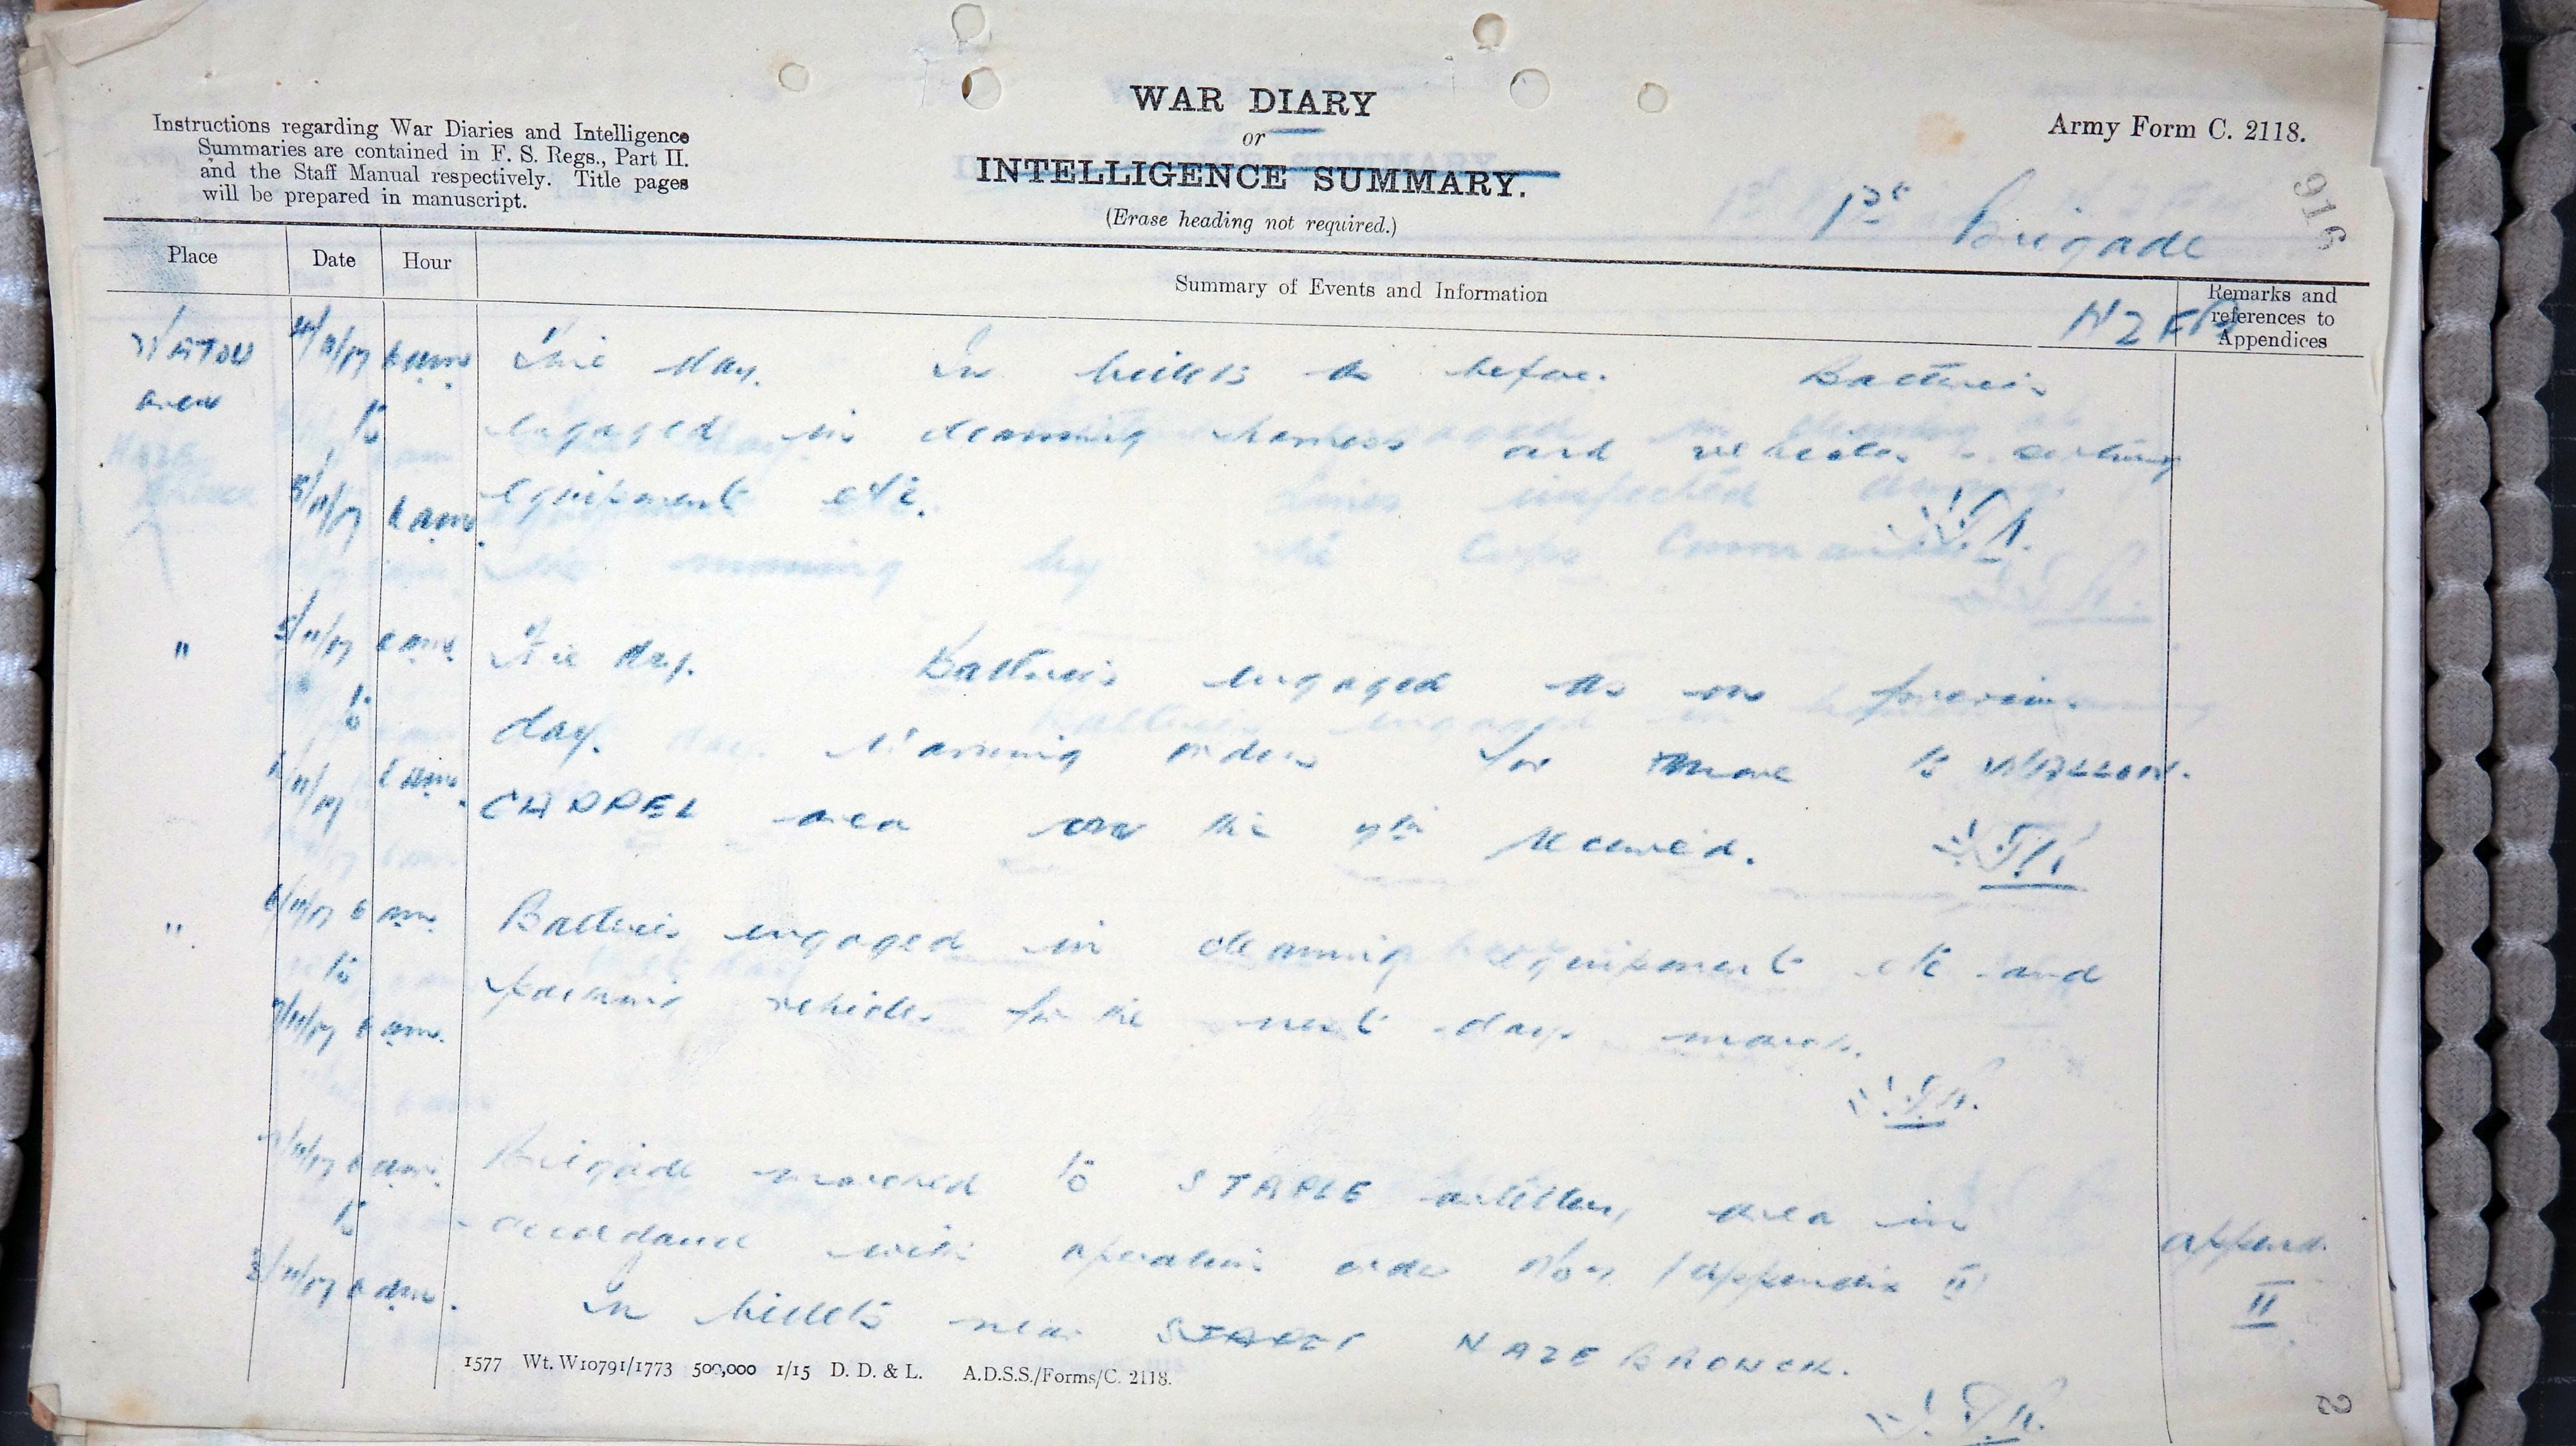 WAR DIARY
or
INTELLIGENCE SUMMARY.
(Erase heading not required.)
Instructions regarding War Diaries and Intelligence
Summaries are contained in F. S. Regs., Part II.
and the Staff Manual respectively. Title pages
will be prepared in manuscript.
Army Form C. 2118.
916
1st Brigade
NZFA
Place
Date
Hour
Summary of Events and Information
Remarks and
references to
Appendices
WATOU
area
4/11/17 6 am
to
5/11/17 6 am.
Fine day. In billets as before. Batteries
engaged in cleaning harness and vehicles
equipment etc.
"
5/11/17 6 am.
to
6/11/17 6 am.
Fine day. Batteries engaged as on previous
day. Warning orders for move to WALLON.
CAPPEL area on the 7th received.
"
6/11/17 6 am.
to
7/11/17 6 am.
Batteries engaged in cleaning equipment etc and
packing vehicles for the next days march.
7/11/17 6 am.
to
8/11/17 6 am.
Brigade marched to STAPLE artillery area in
accordance with operation order No (Appendix II)
In billets near HAZEBROUCK.
append.
II
1577 Wt. W10791/1773 500,000 1/15 D. D. & L. A.D.S.S./Forms/C. 2118.
2